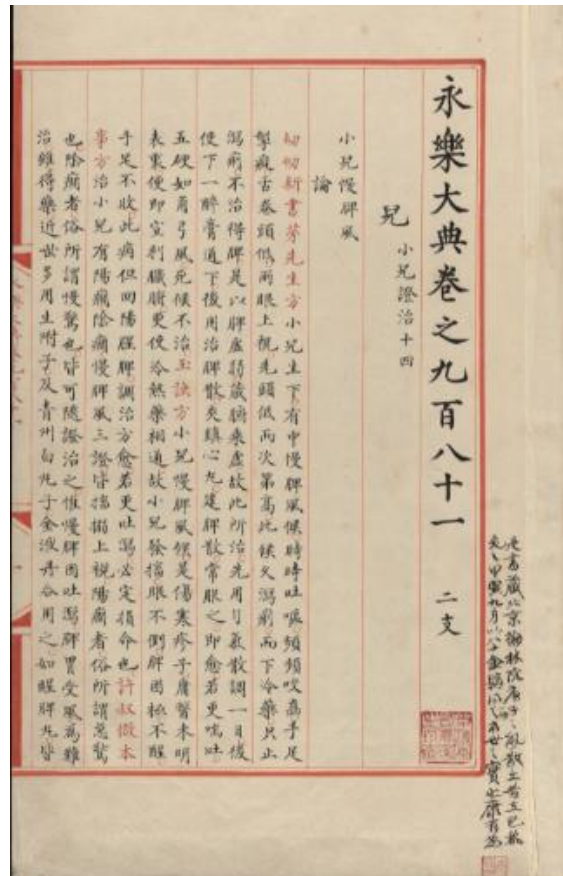 永樂大典卷之九百八十一 二支
兒 小兒證治十四
小兒慢脾風
論
幼幼新書茅先生方小兒生下有中慢脾風候時時吐嘔頻頻咬齒手足
瘛瘲舌卷頭低兩眼上視先頭低而次第高此候久瀉痢而下冷藥只止
瀉痢不治得脾是以脾虛歸藏腑來虛故此所治先用勻氣散調一日後
便下一醉膏通下後用治脾散夾鎮心丸建脾散常服之即愈若更喘吐
五硬如角弓風死候不治玉訣方小兒慢脾風候是傷寒疹子庸醫未明
表裏便即宣利臟腑更使冷熱藥相通故小兒發搐眼不倒脾困極不醒
手足不收此病但回陽醒脾調治方愈若更吐瀉必定損命也許叔微本
事方治小兒有陽癇陰癇慢脾風三證皆搐搦上視陽癇者俗所謂急驚
也陰癇者俗所謂慢驚也皆可隨證治之惟慢脾因吐瀉脾胃受風為難
治雖得藥近世多用生附子及青州白丸子金液丹合用之如醒脾丸皆
此書藏北京翰林院庚子